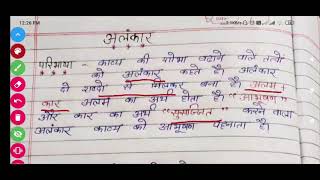 12:26 PM
अलंकार
परिभाषा - काव्य की शोभा बढ़ाने वाले तत्वों
को अलंकार कहते है। अलंकार
दो शब्दो से मिलकर बना है। अलम +
कार अलम का अर्थ होता है। "आभूषण"
और कार का अर्थ "सुसज्जित" करने वाला
अलंकार काव्य को आभूषण पहनाता है।